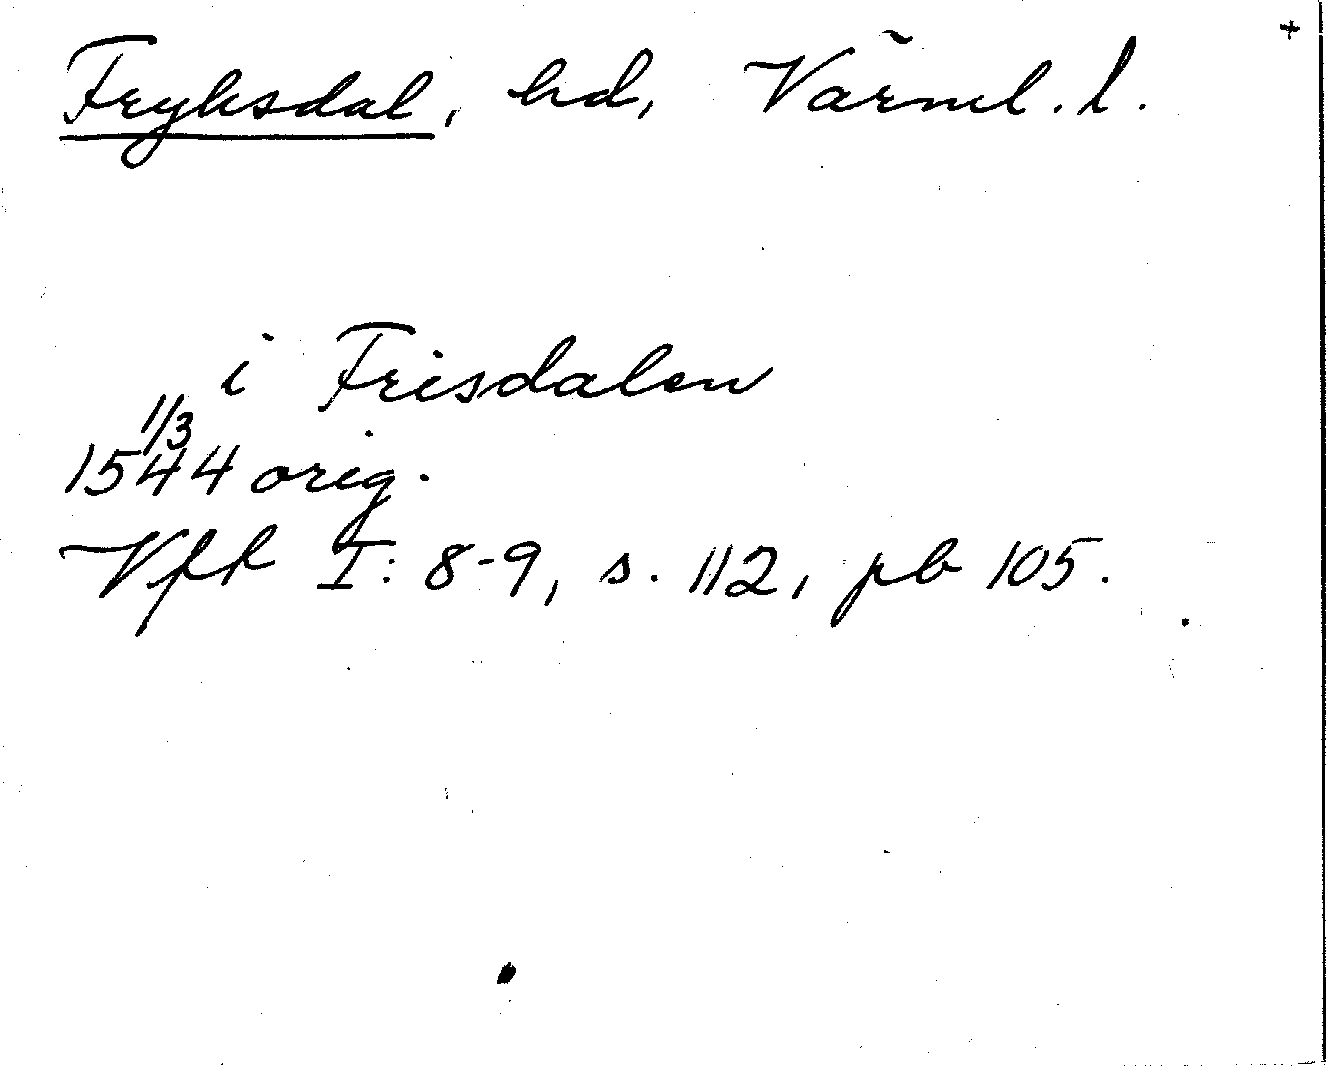 +
Fryksdal, hd, Värml. l.
i Frisdalen
1/3
1544 orig.
Vfh I: 8-9, s. 112, pb 105.